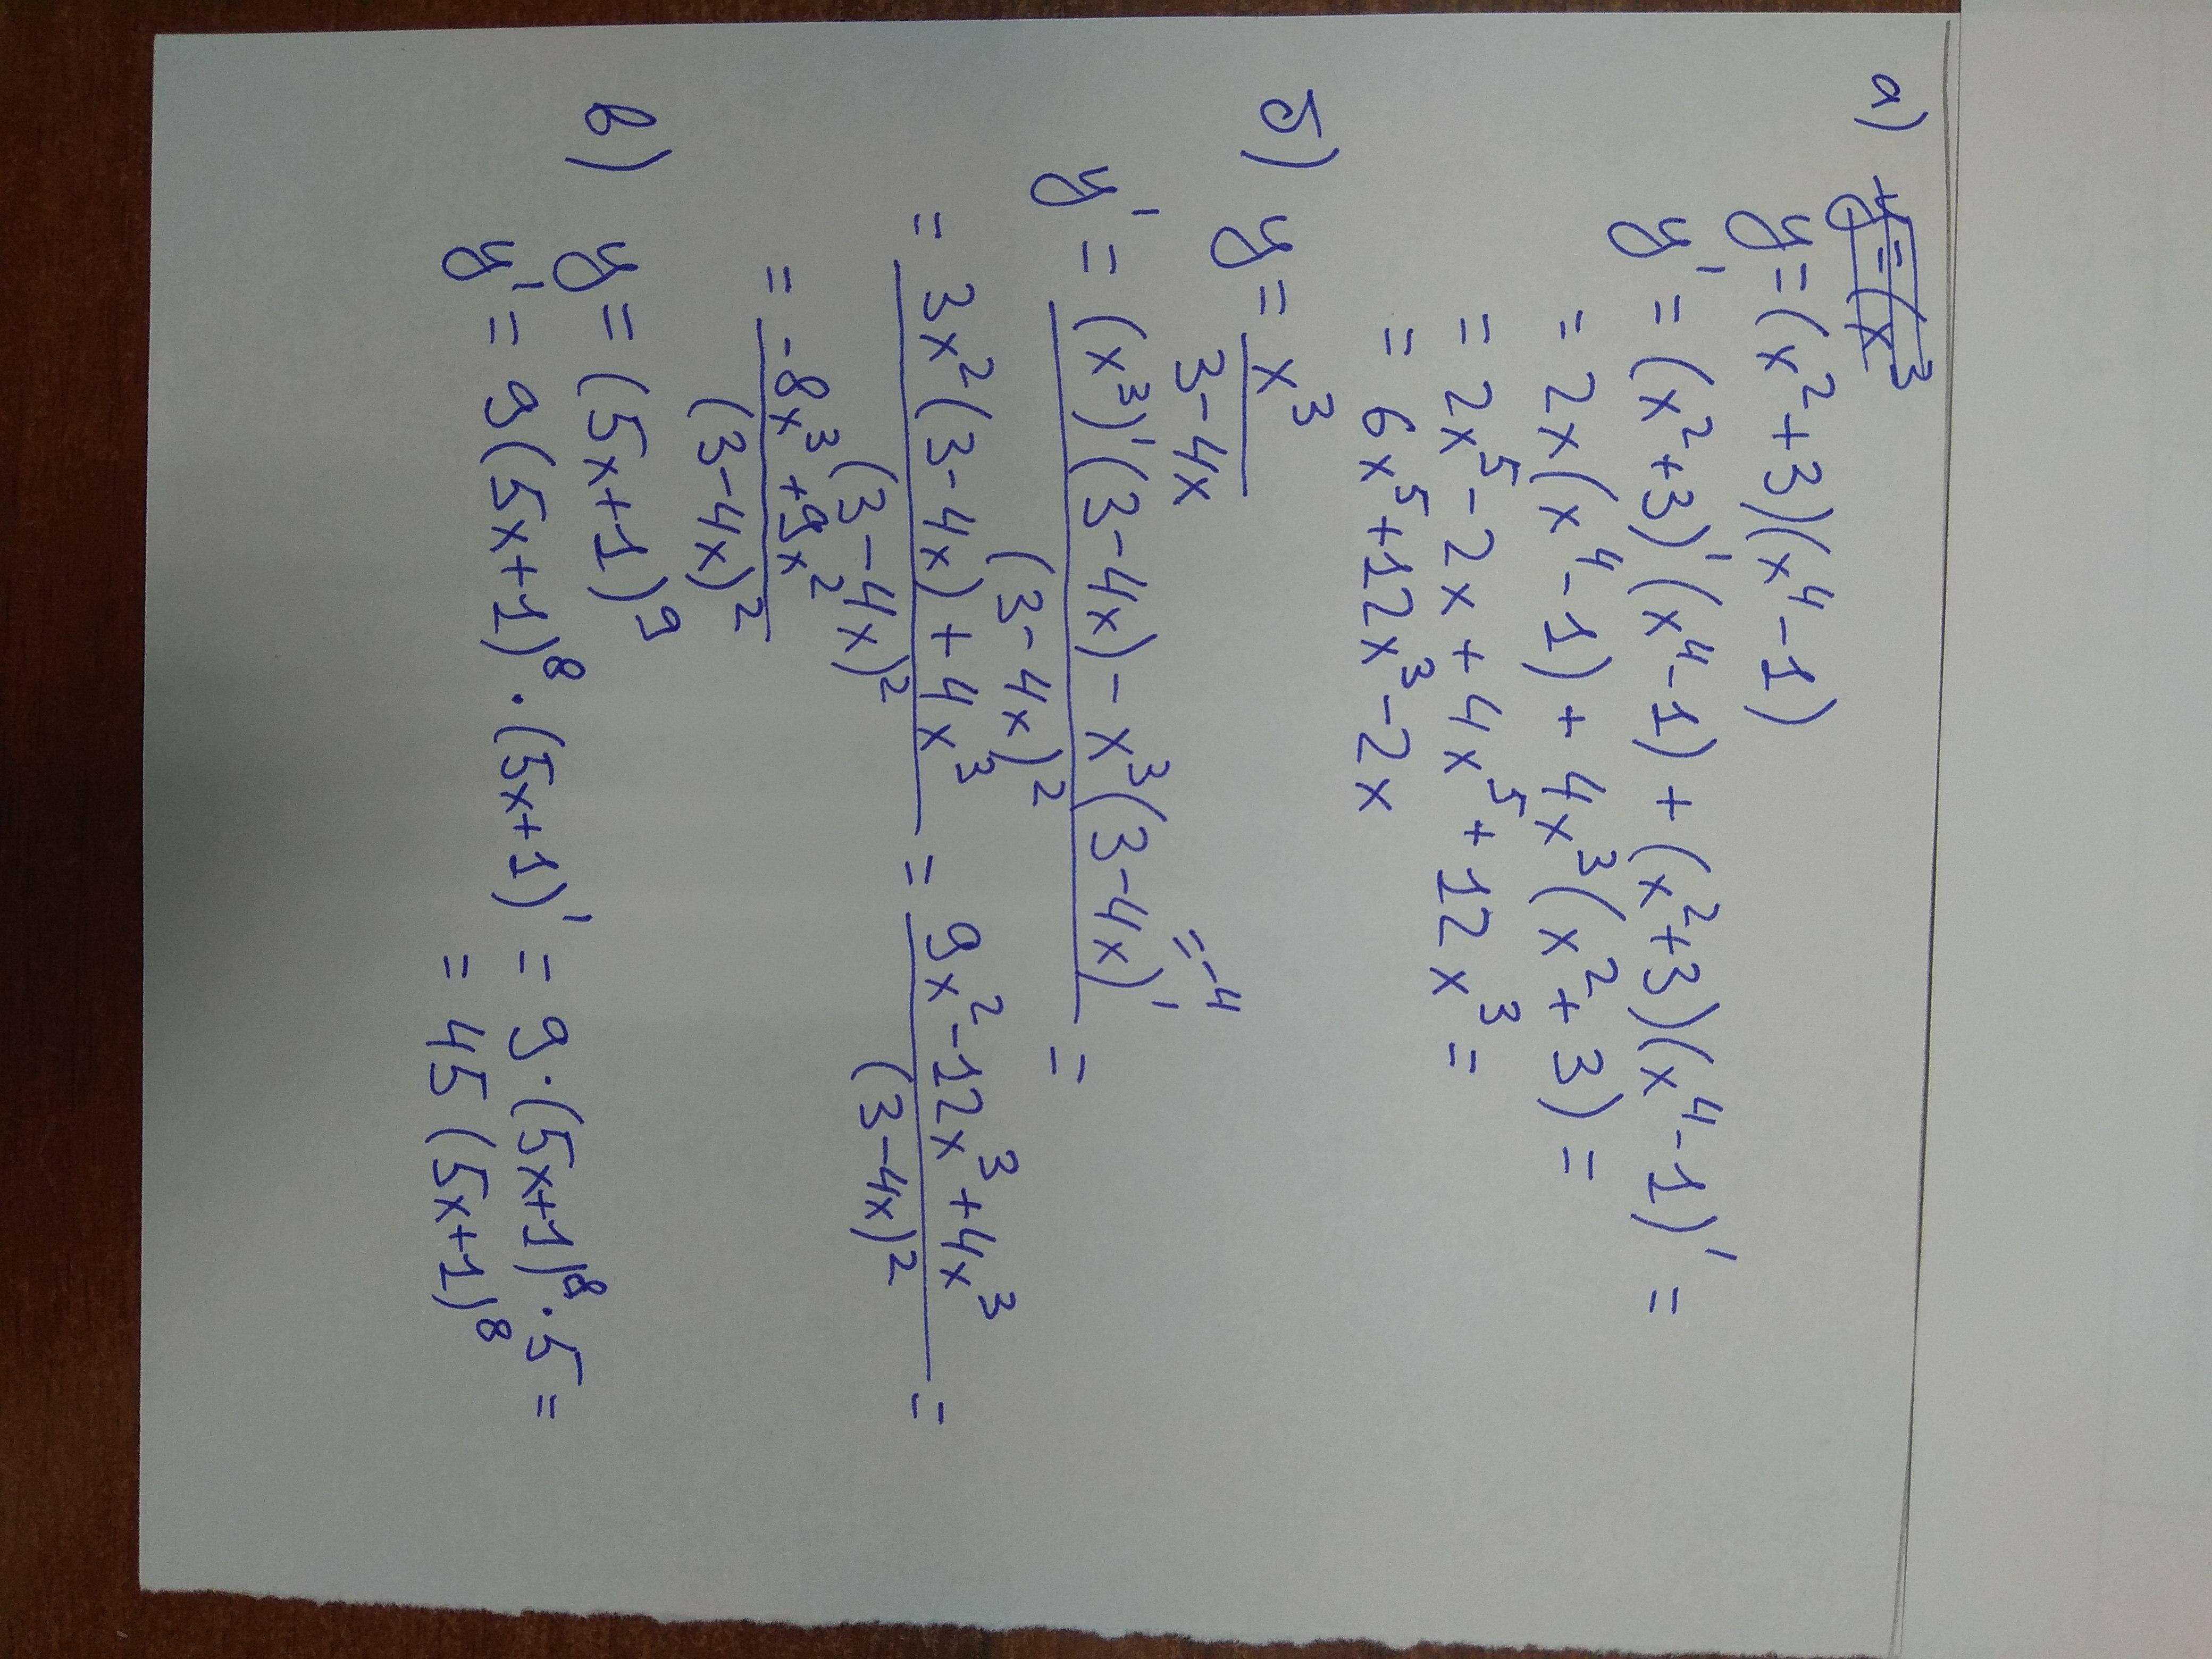 а) y=(x³
y=(x²+3)(x⁴-1)
y'=(x²+3)'(x⁴-1)+(x²+3)(x⁴-1)'=
=2x(x⁴-1)+4x³(x²+3)=
=2x⁵-2x+4x⁵+12x³=
=6x⁵+12x³-2x
б) y= x³
3-4x
=-4
y'= (x³)'(3-4x)-x³(3-4x)' =
(3-4x)²
= 3x²(3-4x)+4x³ = 9x²-12x³+4x³ =
(3-4x)² (3-4x)²
= -8x³+9x²
(3-4x)²
в) y=(5x+1)⁹
y'=9(5x+1)⁸·(5x+1)'=9·(5x+1)⁸·5=
=45(5x+1)⁸